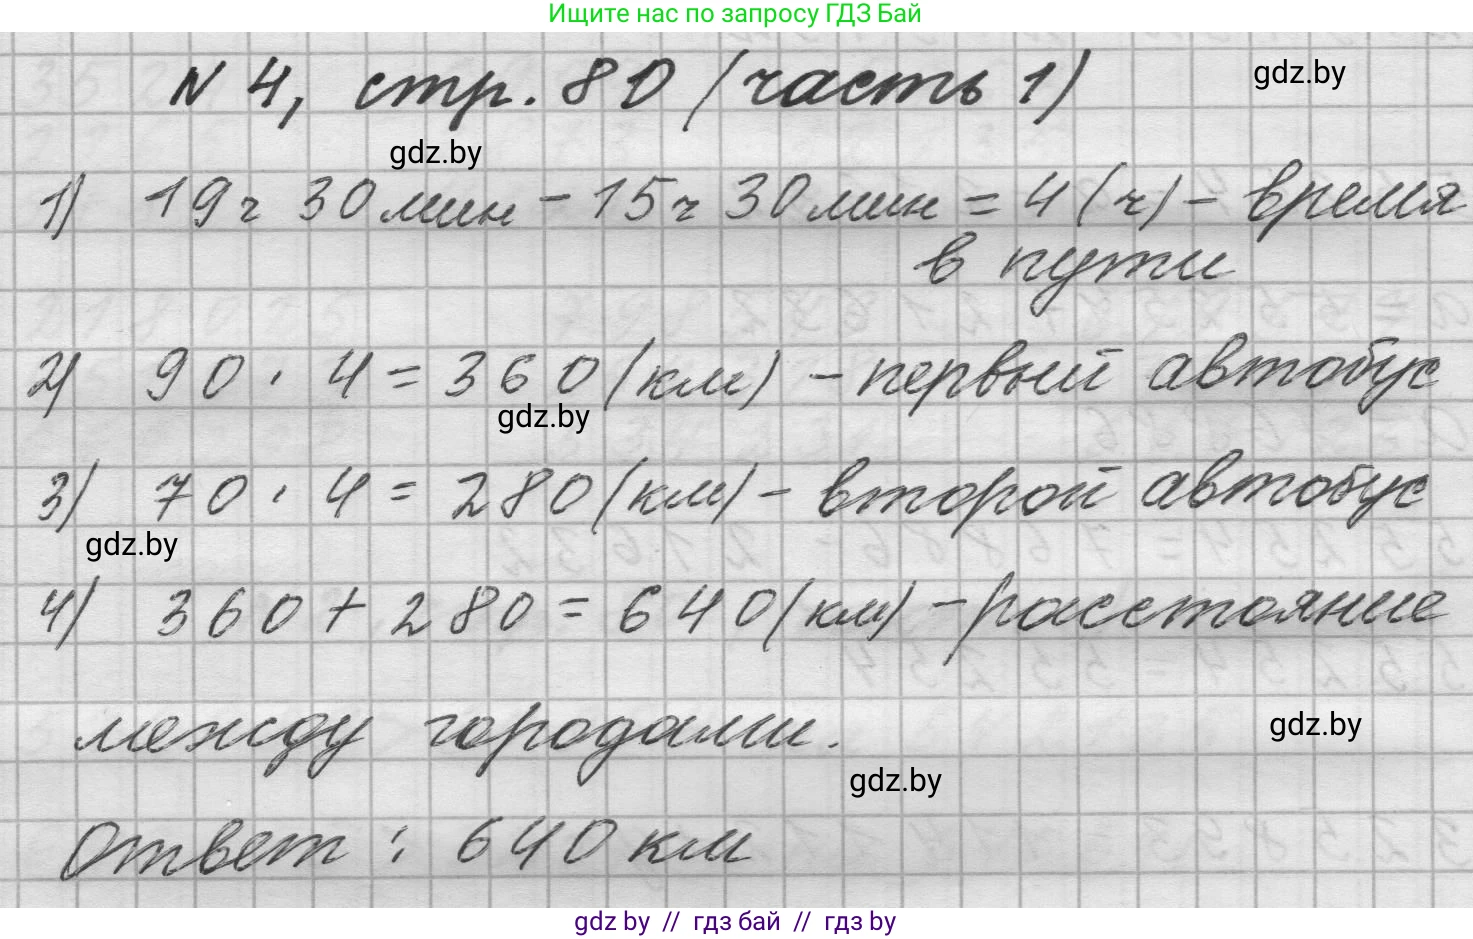 Ищите нас по запросу ГДЗ Бай
N 4, стр. 80 (часть 1)
gdz.by
gdz.by
1) 19ч 30мин - 15ч 30мин = 4(ч) - время
в пути
2) 90 · 4 = 360(км) - первый автобус
gdz.by
3) 70 · 4 = 280(км) - второй автобус
gdz.by
4) 360 + 280 = 640(км) - расстояние
между городами.
gdz.by
gdz.by
Ответ: 640 км
gdz by // гдз бай // гдз by